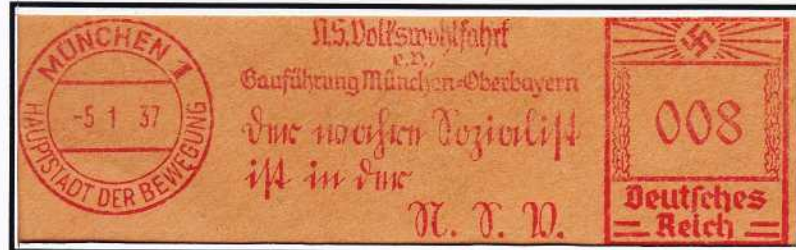 MÜNCHEN 1
-5 1 37
HAUPTSTADT DER BEWEGUNG
N.S. Volkswohlfahrt
e.V.,
Gauführung München-Oberbayern
Der wahre Sozialist
ist in der
N. S. V.
008
Deutsches
Reich